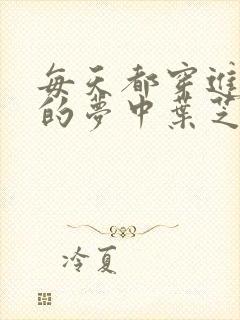 每天都穿進
的夢中葉芝
冷夏